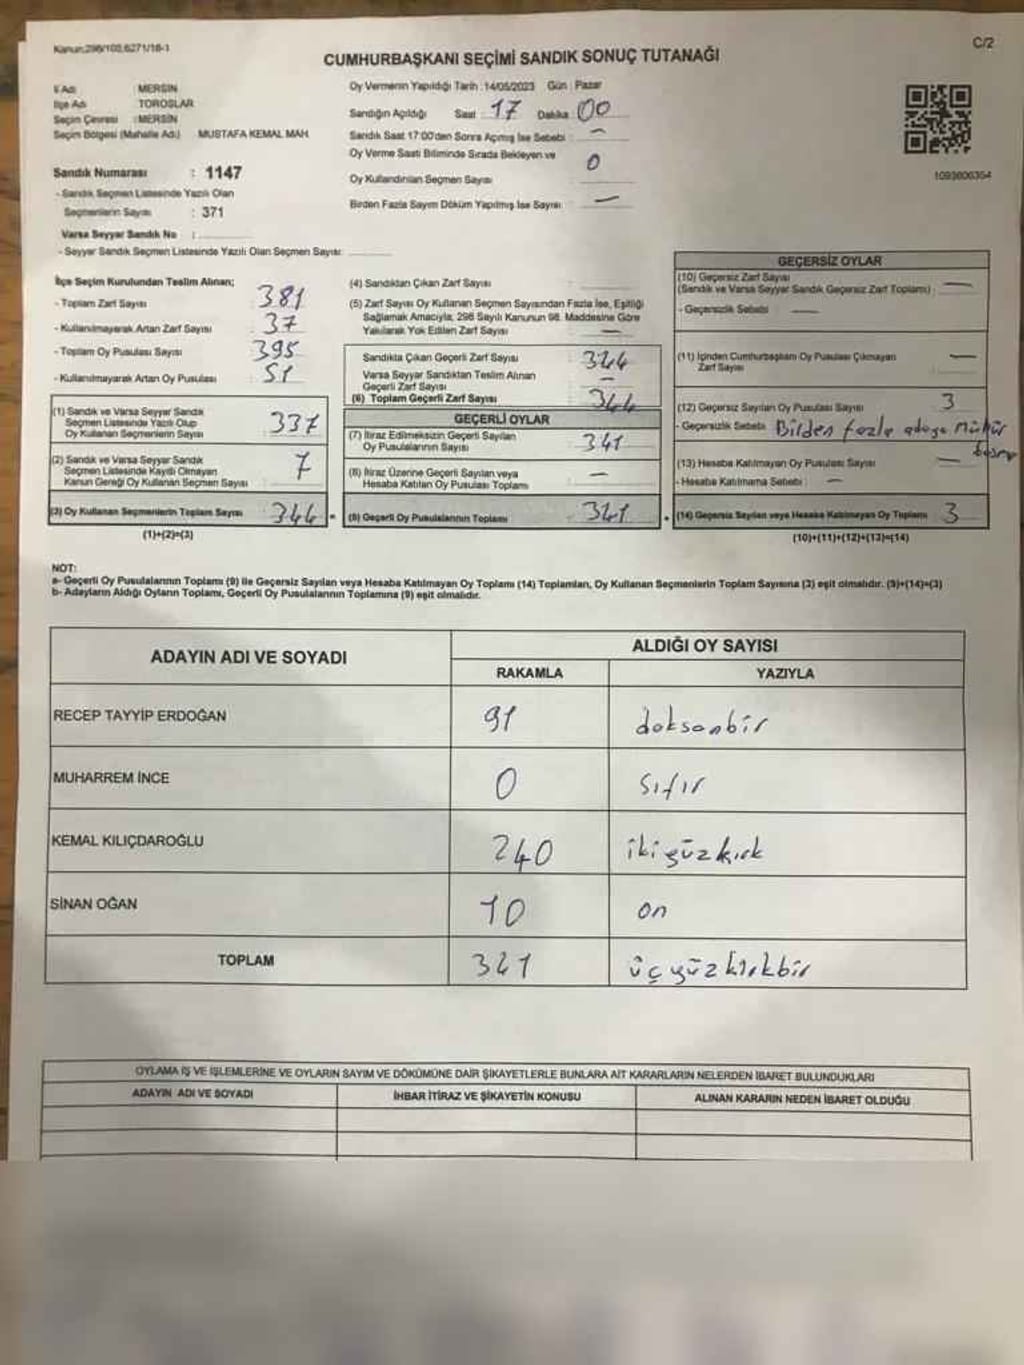 Kanun:298/105,6271/18-1
C/2
CUMHURBAŞKANI SEÇİMİ SANDIK SONUÇ TUTANAĞI
İl Adı : MERSİN
İlçe Adı : TOROSLAR
Seçim Çevresi : MERSİN
Seçim Bölgesi (Mahalle Adı) MUSTAFA KEMAL MAH.
Sandık Numarası : 1147
- Sandık Seçmen Listesinde Yazılı Olan
Seçmenlerin Sayısı : 371
Varsa Seyyar Sandık No :
- Seyyar Sandık Seçmen Listesinde Yazılı Olan Seçmen Sayısı:
Oy Vermenin Yapıldığı Tarih : 14/05/2023 Gün : Pazar
Sandığın Açıldığı Saat : 17 Dakika : 00
Sandık Saat 17:00'den Sonra Açılmış İse Sebebi : —
Oy Verme Saati Bitiminde Sırada Bekleyen ve
Oy Kullandırılan Seçmen Sayısı : 0
Birden Fazla Sayım Döküm Yapılmış İse Sayısı : —
1093606354
İlçe Seçim Kurulundan Teslim Alınan;
- Toplam Zarf Sayısı : 381
- Kullanılmayarak Artan Zarf Sayısı : 37
- Toplam Oy Pusulası Sayısı : 395
- Kullanılmayarak Artan Oy Pusulası : 51
(1) Sandık ve Varsa Seyyar Sandık
Seçmen Listesinde Yazılı Olup
Oy Kullanan Seçmenlerin Sayısı : 337
(2) Sandık ve Varsa Seyyar Sandık
Seçmen Listesinde Kayıtlı Olmayan
Kanun Gereği Oy Kullanan Seçmen Sayısı : 7
(3) Oy Kullanan Seçmenlerin Toplam Sayısı : 344
(1)+(2)=(3)
(4) Sandıktan Çıkan Zarf Sayısı :
(5) Zarf Sayısı Oy Kullanan Seçmen Sayısından Fazla İse, Eşitliği
Sağlamak Amacıyla, 298 Sayılı Kanunun 98. Maddesine Göre
Yakılarak Yok Edilen Zarf Sayısı : —
Sandıkta Çıkan Geçerli Zarf Sayısı : 344
Varsa Seyyar Sandıktan Teslim Alınan
Geçerli Zarf Sayısı : —
(6) Toplam Geçerli Zarf Sayısı : 344
GEÇERLİ OYLAR
(7) İtiraz Edilmeksizin Geçerli Sayılan
Oy Pusulalarının Sayısı : 341
(8) İtiraz Üzerine Geçerli Sayılan veya
Hesaba Katılan Oy Pusulası Toplamı : —
(9) Geçerli Oy Pusulalarının Toplamı : 341
GEÇERSİZ OYLAR
(10) Geçersiz Zarf Sayısı
(Sandık ve Varsa Seyyar Sandık Geçersiz Zarf Toplamı) : —
- Geçersizlik Sebebi : —
(11) İçinden Cumhurbaşkanı Oy Pusulası Çıkmayan
Zarf Sayısı : —
(12) Geçersiz Sayılan Oy Pusulası Sayısı : 3
- Geçersizlik Sebebi : Birden fazla adaya mühür
(13) Hesaba Katılmayan Oy Pusulası Sayısı : —
- Hesaba Katılmama Sebebi : —
(14) Geçersiz Sayılan veya Hesaba Katılmayan Oy Toplamı : 3
(10)+(11)+(12)+(13)=(14)
NOT:
a- Geçerli Oy Pusulalarının Toplamı (9) ile Geçersiz Sayılan veya Hesaba Katılmayan Oy Toplamı (14) Toplamları, Oy Kullanan Seçmenlerin Toplam Sayısına (3) eşit olmalıdır. (9)+(14)=(3)
b- Adayların Aldığı Oyların Toplamı, Geçerli Oy Pusulalarının Toplamına (9) eşit olmalıdır.
ADAYIN ADI VE SOYADI
ALDIĞI OY SAYISI
RAKAMLA YAZIYLA
RECEP TAYYİP ERDOĞAN 91 doksanbir
MUHARREM İNCE 0 sıfır
KEMAL KILIÇDAROĞLU 240 ikiyüzkırk
SİNAN OĞAN 10 on
TOPLAM 341 üçyüzkırkbir
OYLAMA İŞ VE İŞLEMLERİNE VE OYLARIN SAYIM VE DÖKÜMÜNE DAİR ŞİKAYETLERLE BUNLARA AİT KARARLARIN NELERDEN İBARET BULUNDUKLARI
ADAYIN ADI VE SOYADI İHBAR İTİRAZ VE ŞİKAYETİN KONUSU ALINAN KARARIN NEDEN İBARET OLDUĞU